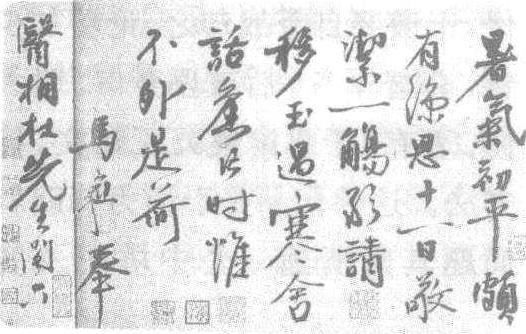 暑氣初平頗
有涼思十一日敬
潔一觴請
移玉過寒舍
話舊时惟
不外是荷
馬奉
醫相杜先生閣下